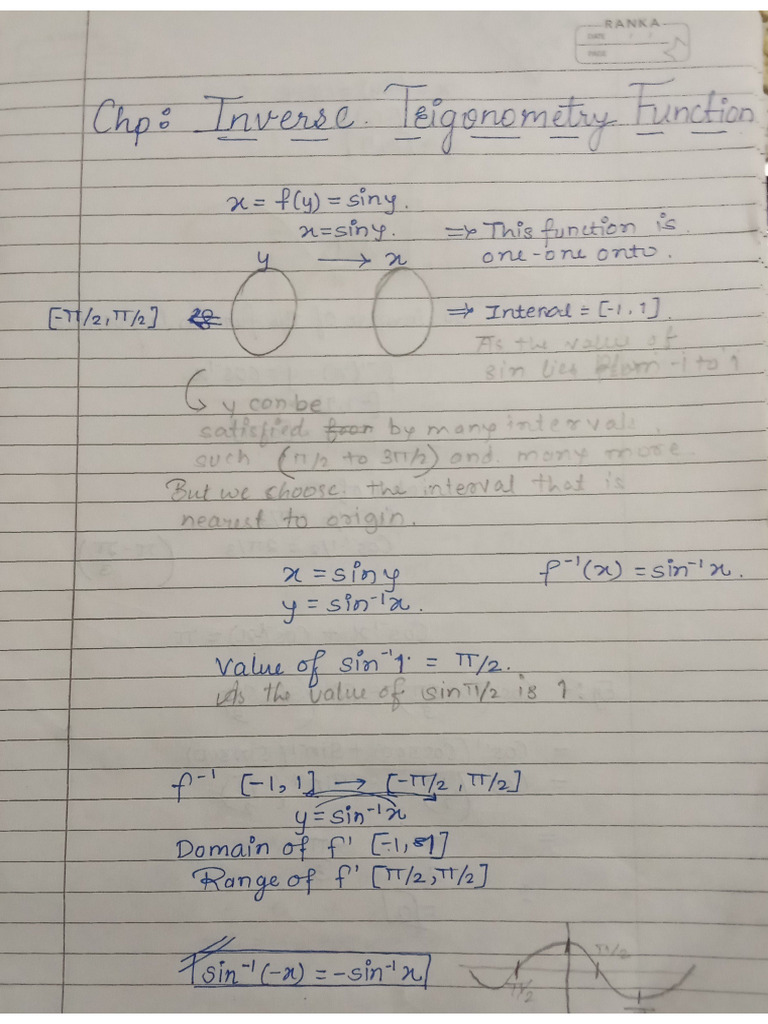 RANKA
DATE / /
PAGE
Chp: Inverse. Teigonometry Function
x = f(y) = siny.
x=siny. => This function is
one-one onto.
y → x
[-π/2, π/2] ⇒ Interal = [-1, 1].
As the value of
sin lies from -1 to 1
y can be
satisfied from by many intervals,
such (π/2 to 3π/2) and many more.
But we choose the interval that is
nearest to origin.
x = siny f⁻¹(x) = sin⁻¹x.
y = sin⁻¹x.
Value of sin⁻¹1. = π/2.
As the value of sin π/2 is 1
f⁻¹ [-1, 1] → [-π/2, π/2]
y = sin⁻¹x
Domain of f' [-1, 1]
Range of f' [π/2, π/2]
sin⁻¹(-x) = -sin⁻¹x
π/2
π/2